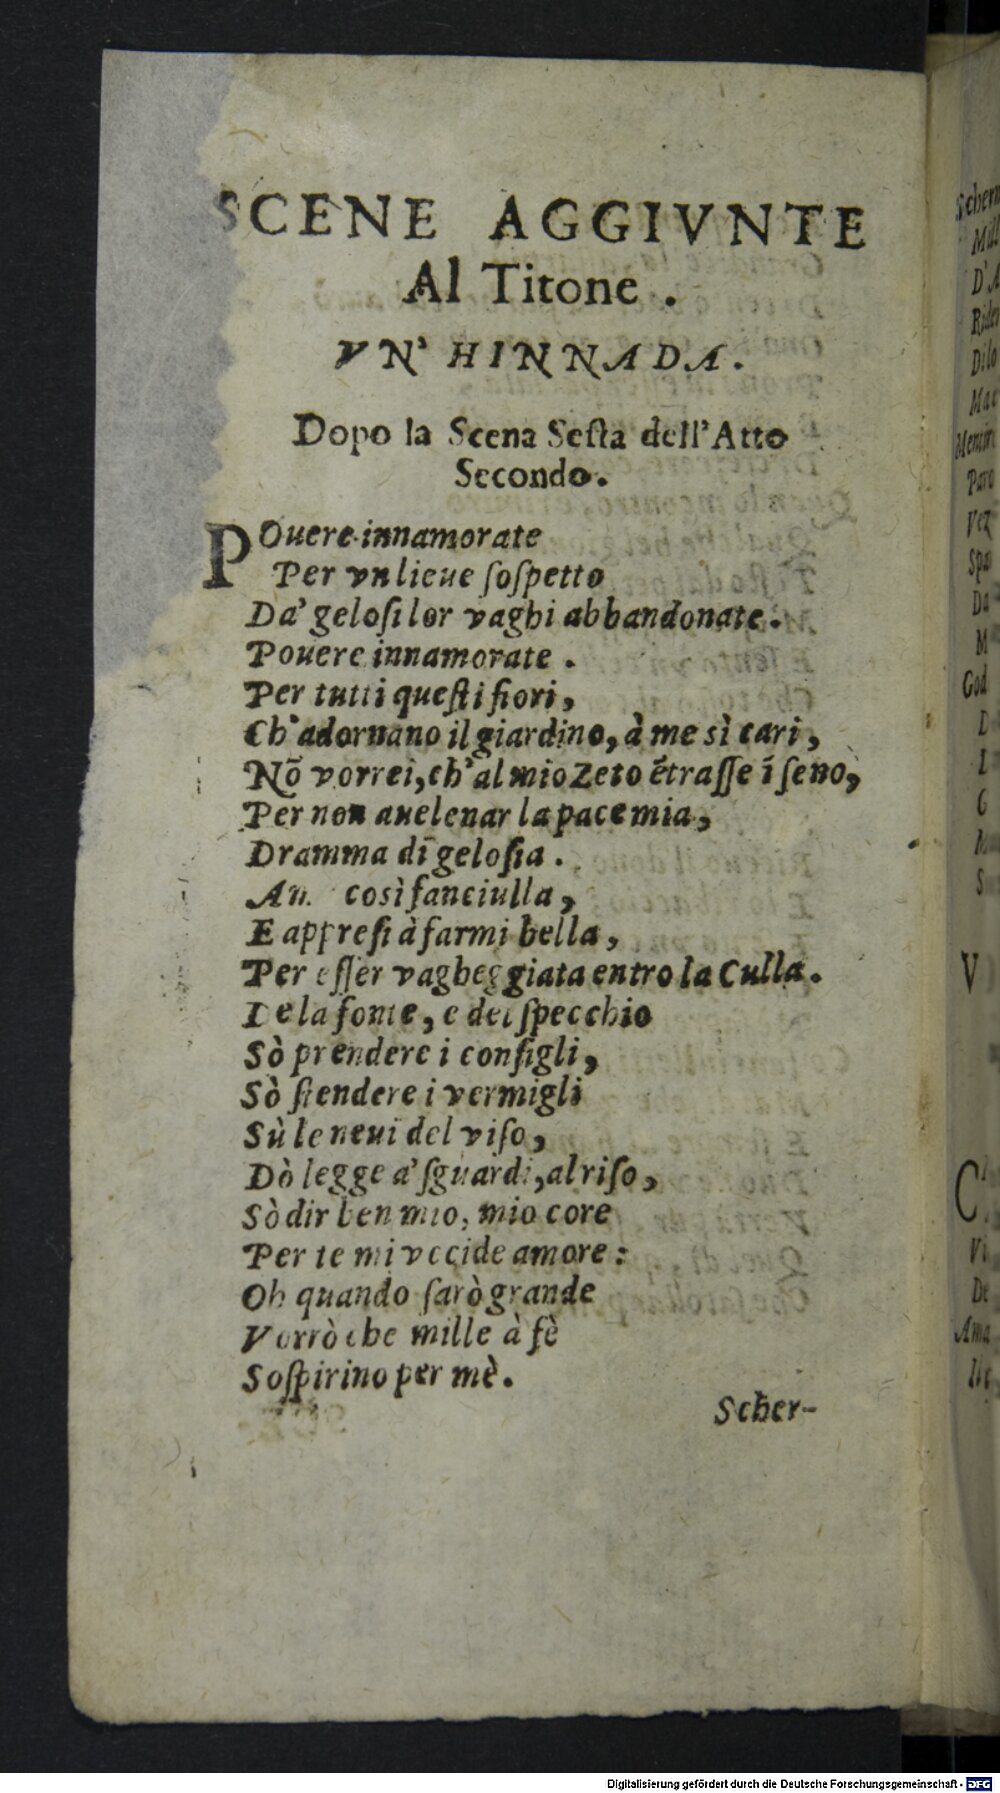 SCENE AGGIVNTE
Al Titone .
VN' HINNADA.
Dopo la Scena Sesta dell'Atto
Secondo.
POuere innamorate
Per vn lieue ſoſpetto
Da' geloſi lor vaghi abbandonate.
Pouere innamorate .
Per tutti queſti fiori,
Ch'adornano il giardino, à me sì cari,
Nõ vorrei, ch'al mio Zeto ẽtraſſe ĩ ſeno,
Per non auelenar la pace mia,
Dramma di geloſia .
An. così fanciulla,
E appreſi à farmi bella,
Per eſſer vagheggiata entro la Culla.
De la fonte, e del ſpecchio
Sò prendere i conſigli,
Sò ſtendere i vermigli
Sù le neui del viſo,
Dò legge a' ſguardi, al riſo,
Sò dir ben mio, mio core
Per te mi vccide amore:
Oh quando ſarò grande
Verrò che mille à fè
Soſpirino per mè.
Scher-
Scher
D'A
Rider
Dile
Mentir
Vez
Spa
Da
M
God
D
V
C
Vi
De
Ama
Digitalisierung gefördert durch die Deutsche Forschungsgemeinschaft - DFG